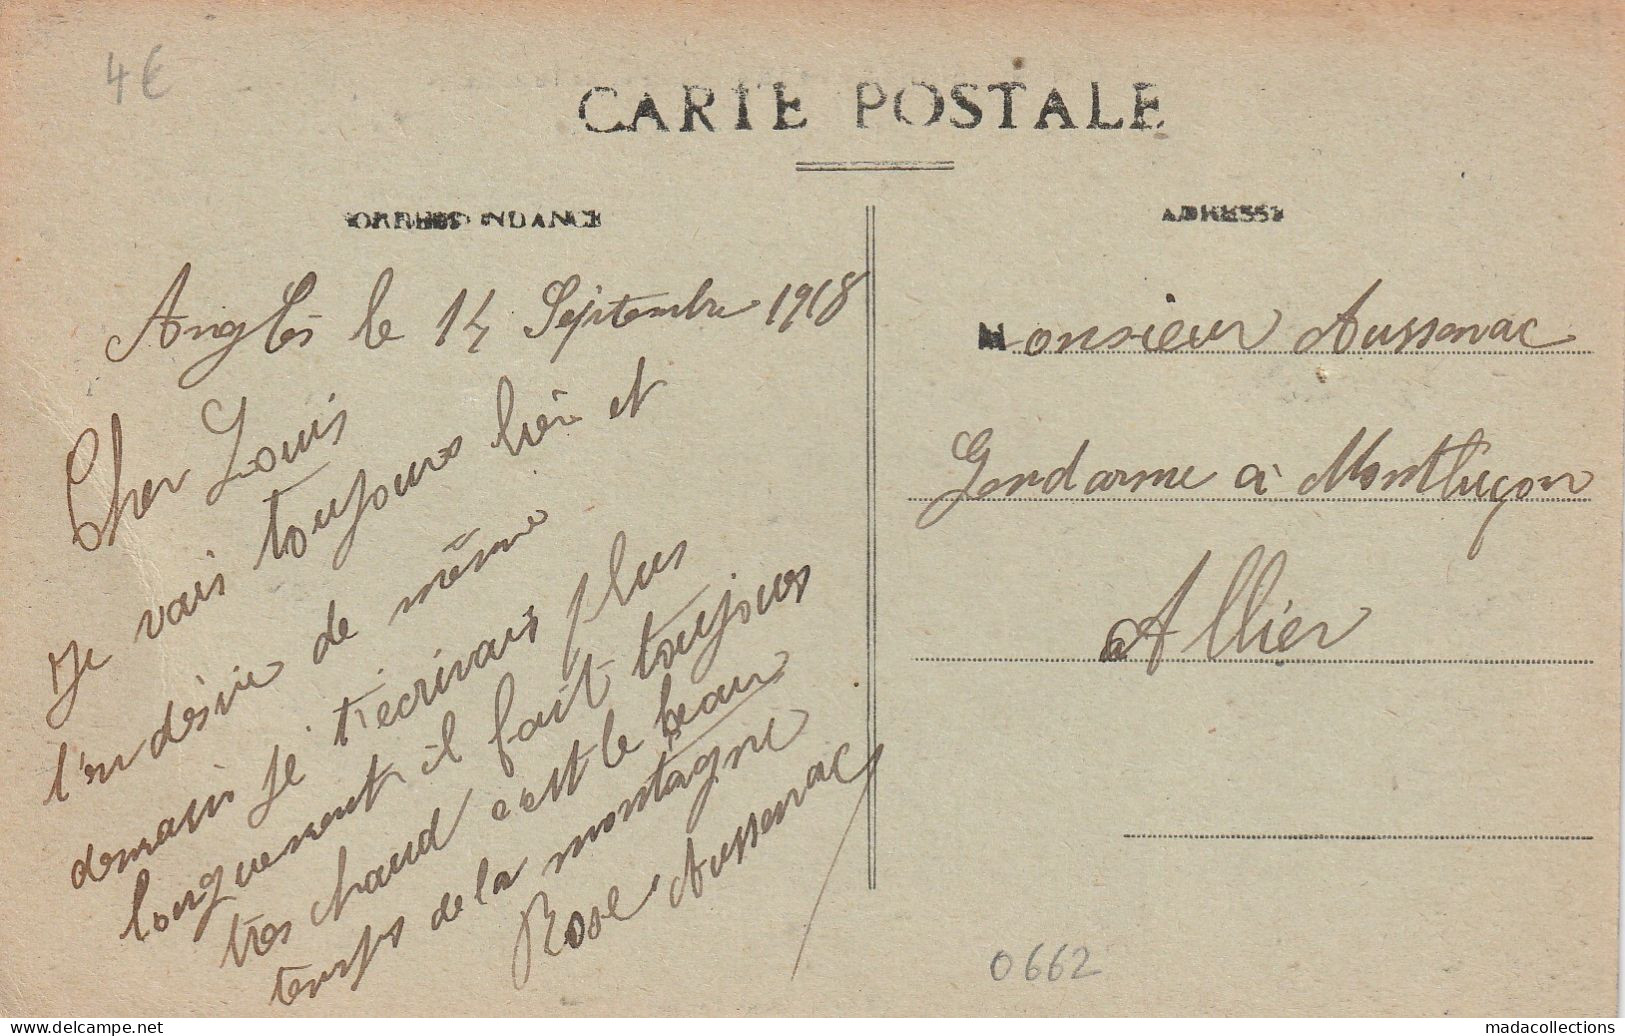 4€
CARTE POSTALE
CORRESPONDANCE
ADRESSE
Anglès le 14 Septembre 1918
Cher Louis
Je vais toujours bien et
t'en désire de même
demain je t'ecrivais plus
longuement il fait toujours
très chaud c'est le beau
temps de la montagne
Rose Aussenac
Monsieur Aussenac
Gendarme à Montluçon
Allier
0662
www.delcampe.net
madacollections